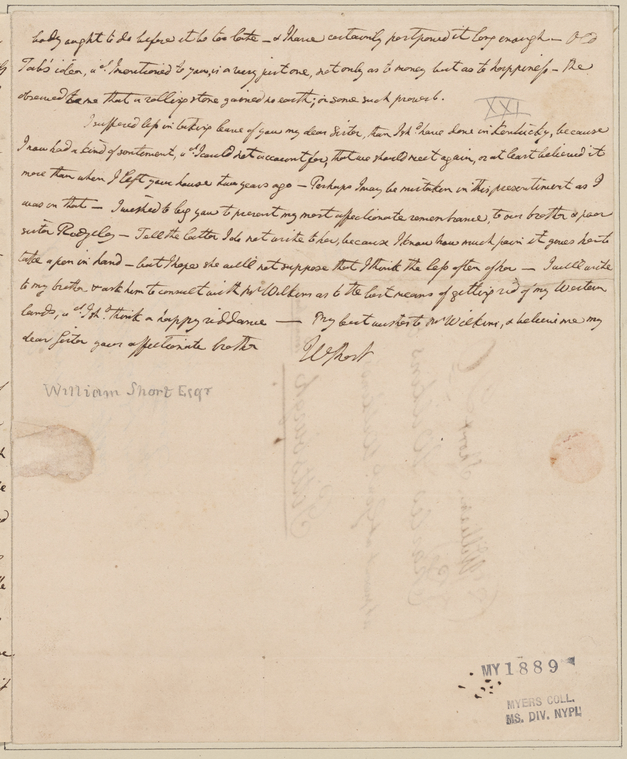 body ought to do before it be too late – & I have certainly postponed it long enough – Old
Tub's idea, wch. I mentioned to you, is a very just one, not only as to money but as to happiness – He
observed to me that a rolling stone gained no earth; or some such proverb.
XXI
I suffered less in taking leave of you my dear Sister, than I shd. have done in Kentucky, because
I now had a kind of sentiment, wch. I could not account for, that we should meet again, or at least believed it
more than when I left your house two years ago – Perhaps I may be mistaken in this presentiment as I
was in that – I wished to beg you to present my most affectionate remembrance, to our brother & poor
sister Ridgeley – Tell the latter I do not write to her, because I know how much pain it gives her to
take a pen in hand – but I hope she will not suppose that I think the less often of her – I will write
to my brother, & ask him to consult with Mr. Wilkins as to the best means of getting rid of my Western
lands, wch. I shd. think a happy riddance — My best wishes to Mr. Wilkins, & believe me my
dear Sister your affectionate brother
WShort
William Short Esqr
MY 1889
MYERS COLL.
MS. DIV. NYPL